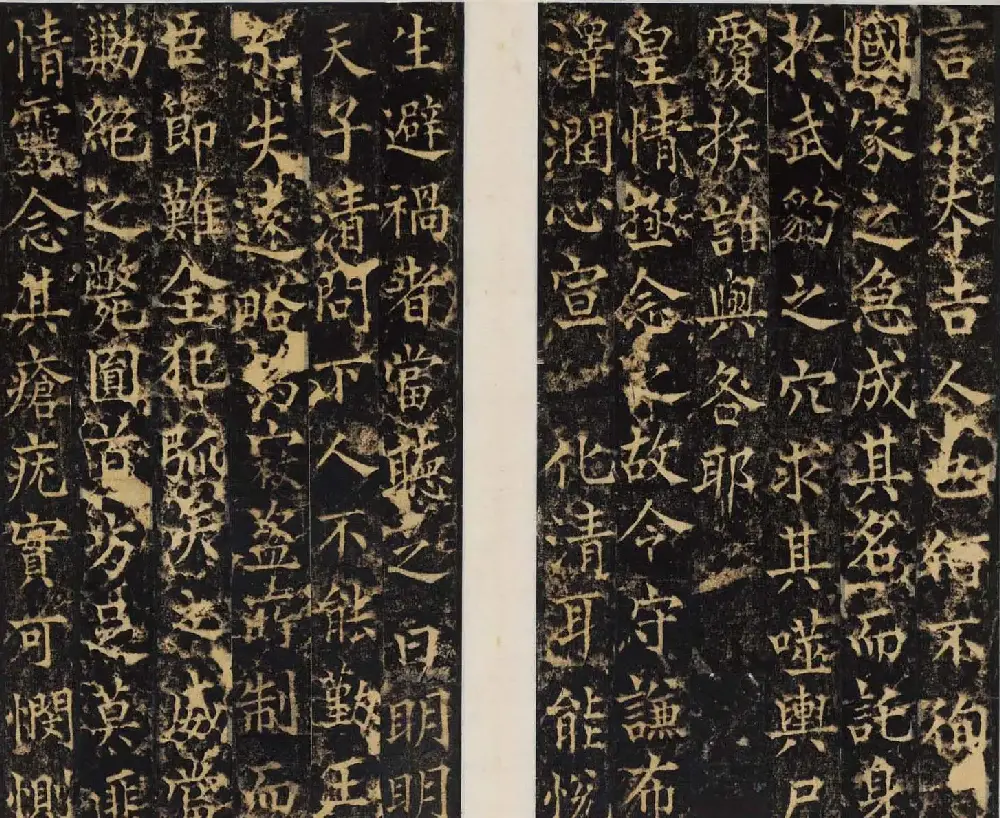 言尔夲吉人也何不殉
國家之急成其名而託身
扵武豹之穴求其噬輿尸
覆族誰與咎耶
皇情極念之故令守謙布
澤潤心宣 化清耳能悦
生避禍者當聽之曰明明
天子清問下人不能勤王
失遠略為寇盜所制而
臣節難全犯弧矢之威當
勦絕之斃圓首方足莫匪
情靈念其瘡疣實可憫惻